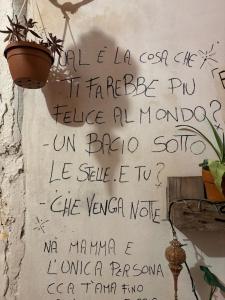 QUAL È LA COSA CHE
TI FAREBBE PIÙ
FELICE AL MONDO?
- UN BACIO SOTTO
LE STELLE. E TU?
- CHE VENGA NOTTE
NA MAMMA E
L'UNICA PERSONA
CCA T'AMA FINO